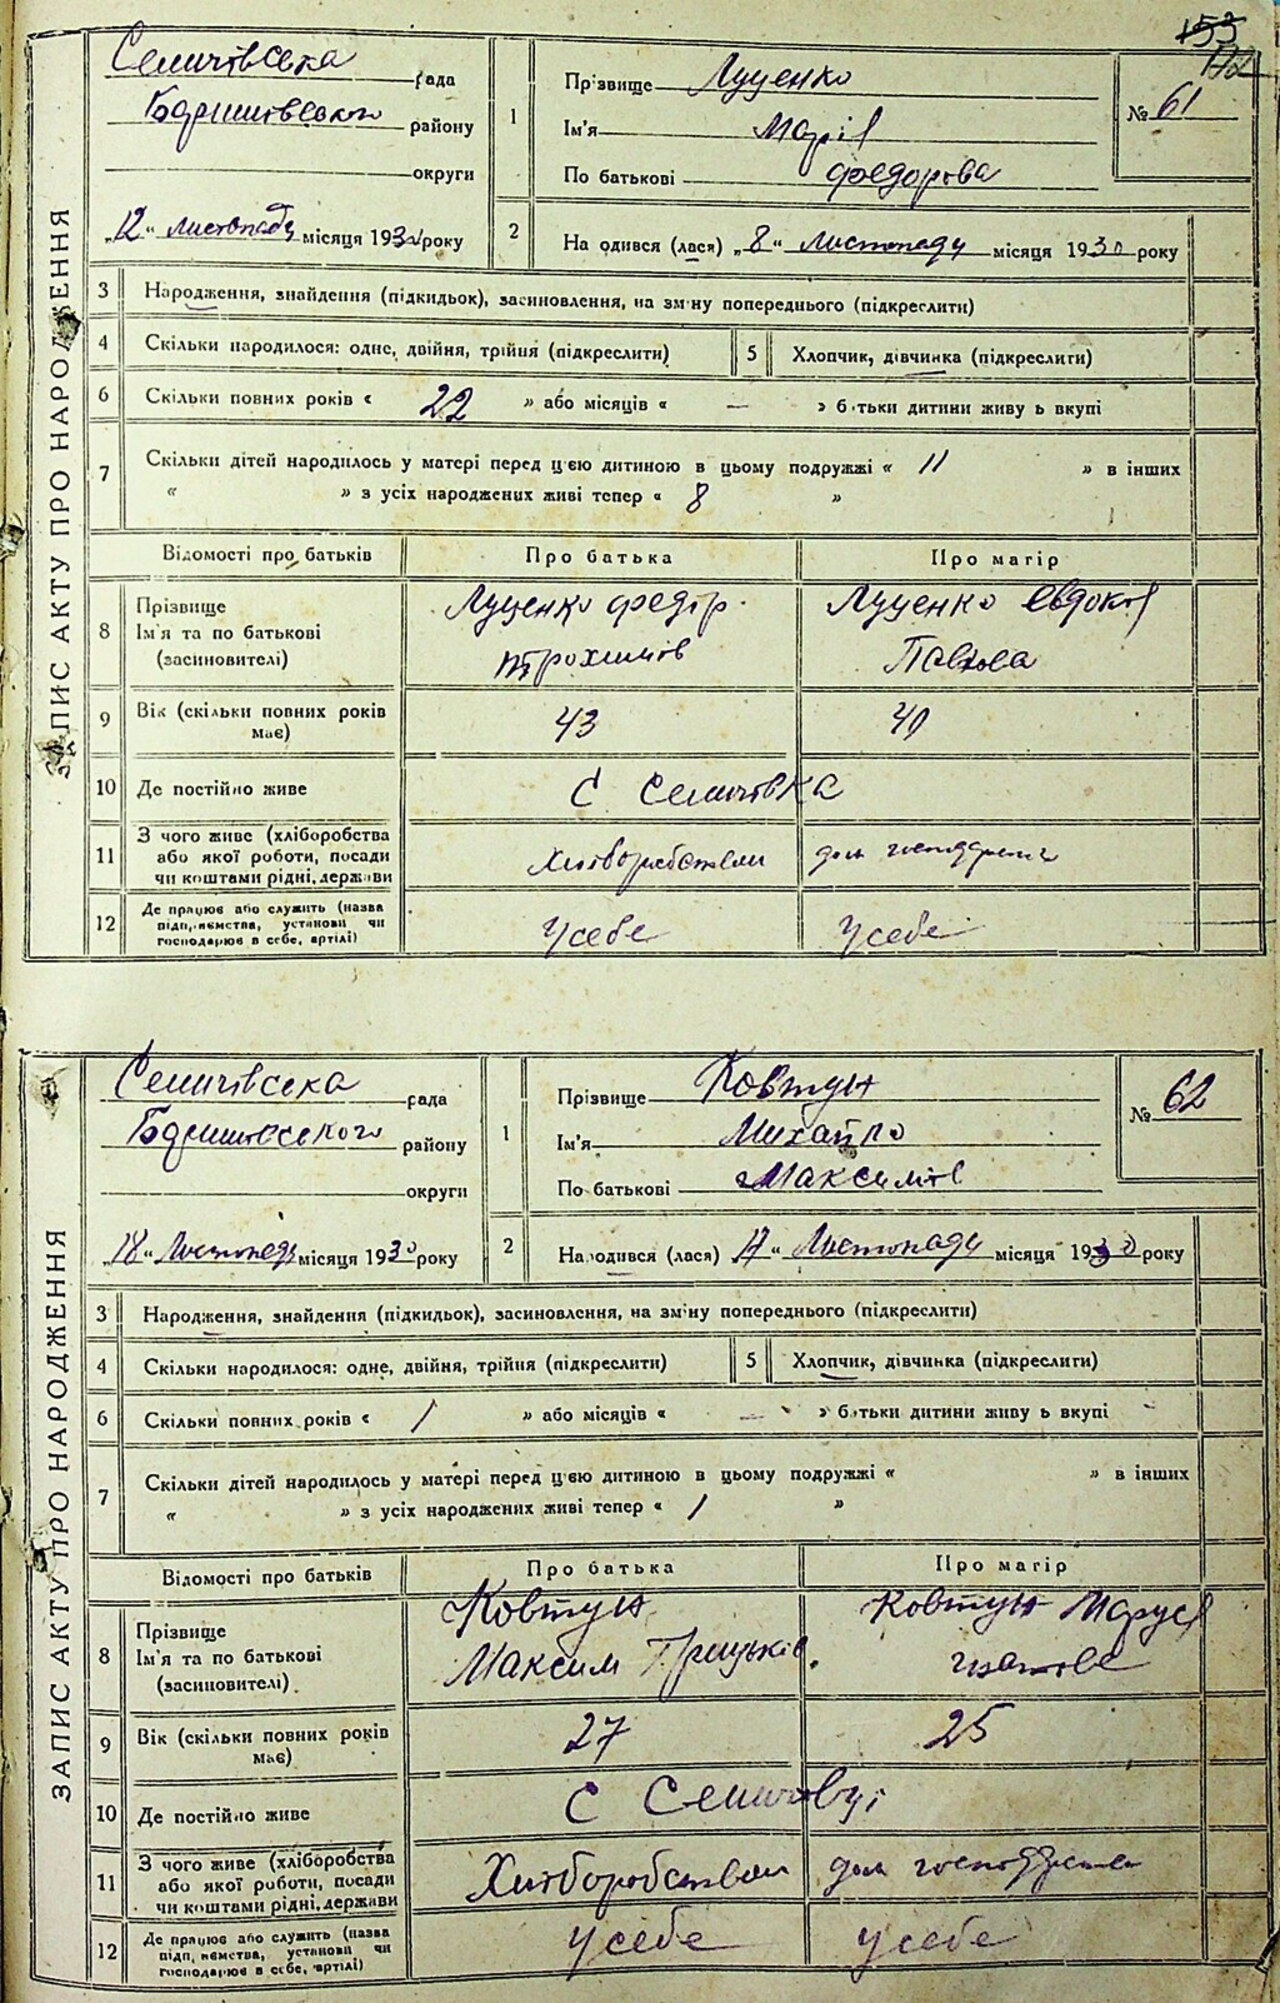 153
112
ЗАПИС АКТУ ПРО НАРОДЖЕННЯ
Семичівська рада
району
округи
„12“ листопаду місяця 1930 року
1
Прізвище Луценко
Ім'я Марія
По батькові Федорова
№ 61
2
Народився (лася) „8“ листопаду місяця 1930 року
3 Народження, знайдення (підкидьок), засиновлення, на зміну попереднього (підкреслити)
4 Скільки народилося: одне, двійня, трійня (підкреслити) 5 Хлопчик, дівчинка (підкреслити)
6 Скільки повних років « 22 » або місяців « — » батьки дитини живуть вкупі
7 Скільки дітей народилось у матері перед цією дитиною в цьому подружжі « 11 » в інших
« » з усіх народжених живі тепер « 8 »
Відомості про батьків Про батька Про матір
8 Прізвище
Ім'я та по батькові
(засиновителі)
Луценко Федір
Трохимів
Луценко Євдокія
Павлова
9 Вік (скільки повних років
має) 43 40
10 Де постійно живе С Семичівка
11 З чого живе (хліборобства
або якої роботи, посади
чи коштами рідні, держави
Хліборобством дом господарка
12 Де працює або служить (назва
підприємства, установи чи
господарює в себе, артілі)
У себе У себе
ЗАПИС АКТУ ПРО НАРОДЖЕННЯ
Семичівська рада
району
округи
„18“ Листопаду місяця 1930 року
1
Прізвище Ковтун
Ім'я Михайло
По батькові Максимів
№ 62
2
Народився (лася) „17“ Листопаду місяця 1930 року
3 Народження, знайдення (підкидьок), засиновлення, на зміну попереднього (підкреслити)
4 Скільки народилося: одне, двійня, трійня (підкреслити) 5 Хлопчик, дівчинка (підкреслити)
6 Скільки повних років « 1 » або місяців « — » батьки дитини живуть вкупі
7 Скільки дітей народилось у матері перед цією дитиною в цьому подружжі « » в інших
« » з усіх народжених живі тепер « 1 »
Відомості про батьків Про батька Про матір
8 Прізвище
Ім'я та по батькові
(засиновителі)
Ковтун
Максим Грицьків.
Ковтун Маруся
Гнатова
9 Вік (скільки повних років
має) 27 25
10 Де постійно живе С Семичівці
11 З чого живе (хліборобства
або якої роботи, посади
чи коштами рідні, держави
Хліборобством дом господарка
12 Де працює або служить (назва
підприємства, установи чи
господарює в себе, артілі)
У себе У себе